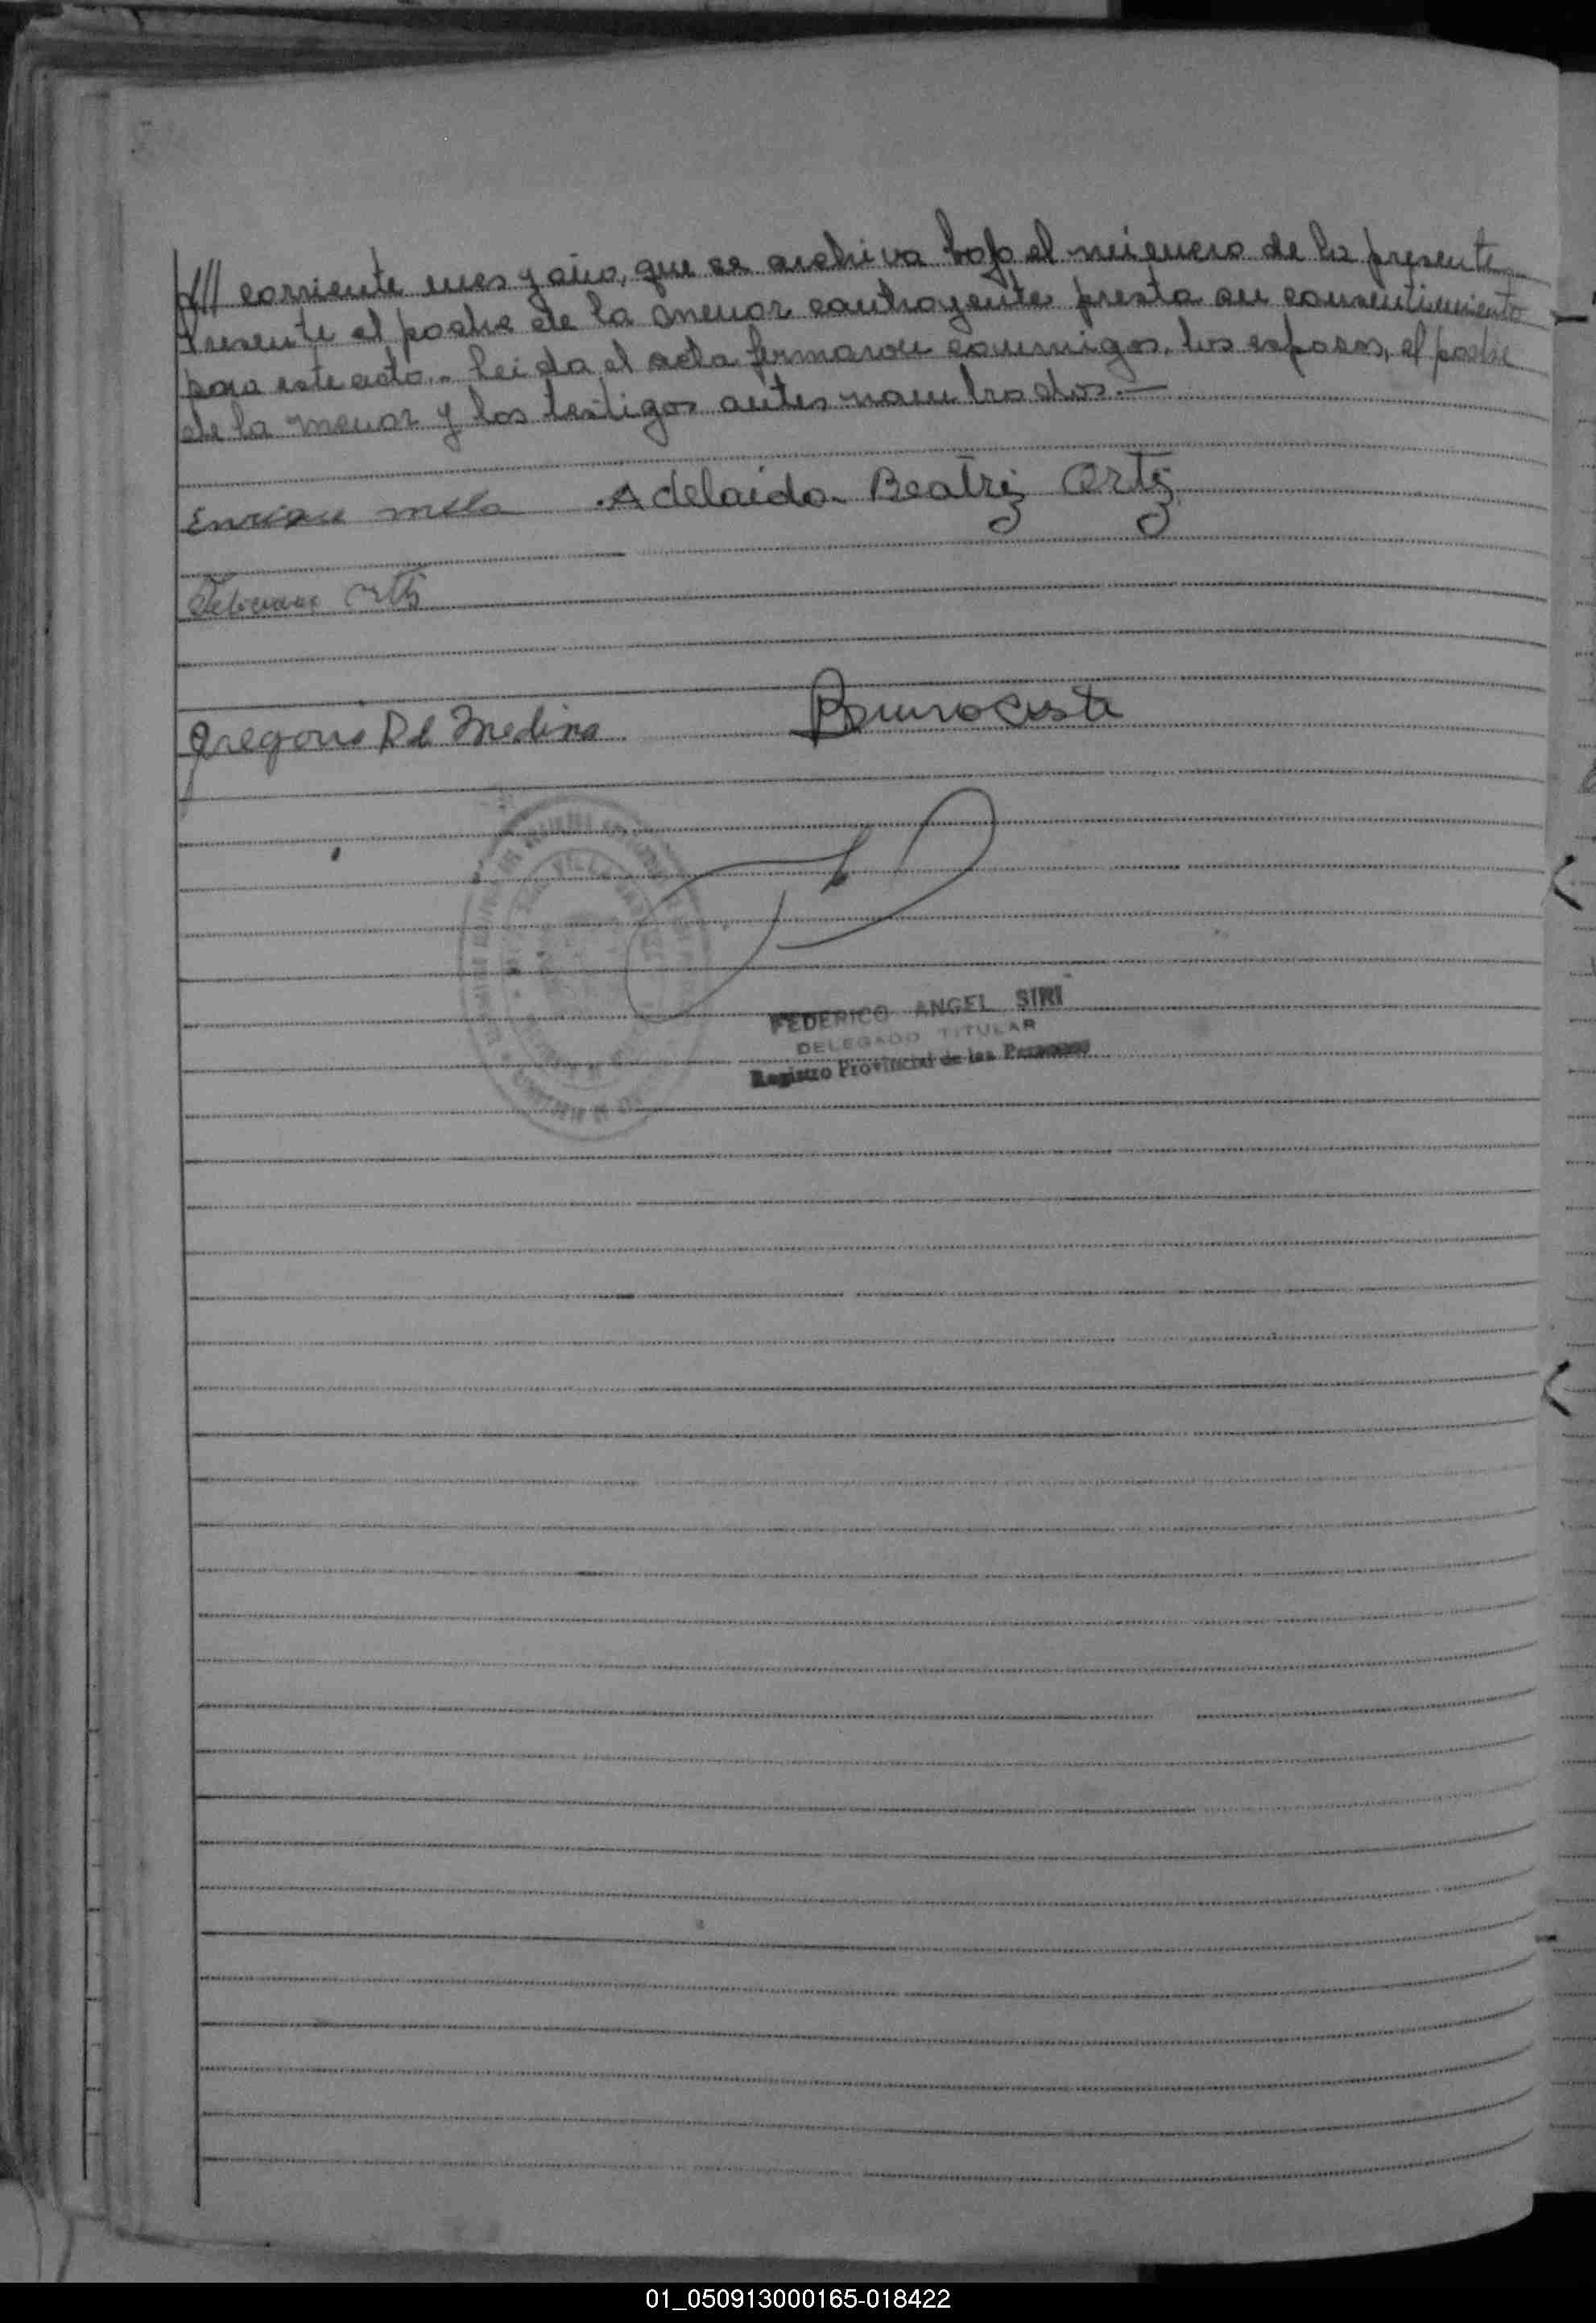 /// corriente mes y año, que se archiva bajo el número de la presente.
Presente el padre de la menor contrayente presta su consentimiento
para este acto.- Leida el acta firmaron conmigo, los esposos, el padre
de la menor y los testigos antes nombrados.-
Enrique Adelaida Beatriz Ortiz
Ortiz
Gregorio Medina Bruno
VILLA
FEDERICO ANGEL SIRI
DELEGADO TITULAR
Registro Provincial de las Personas
01_050913000165-018422